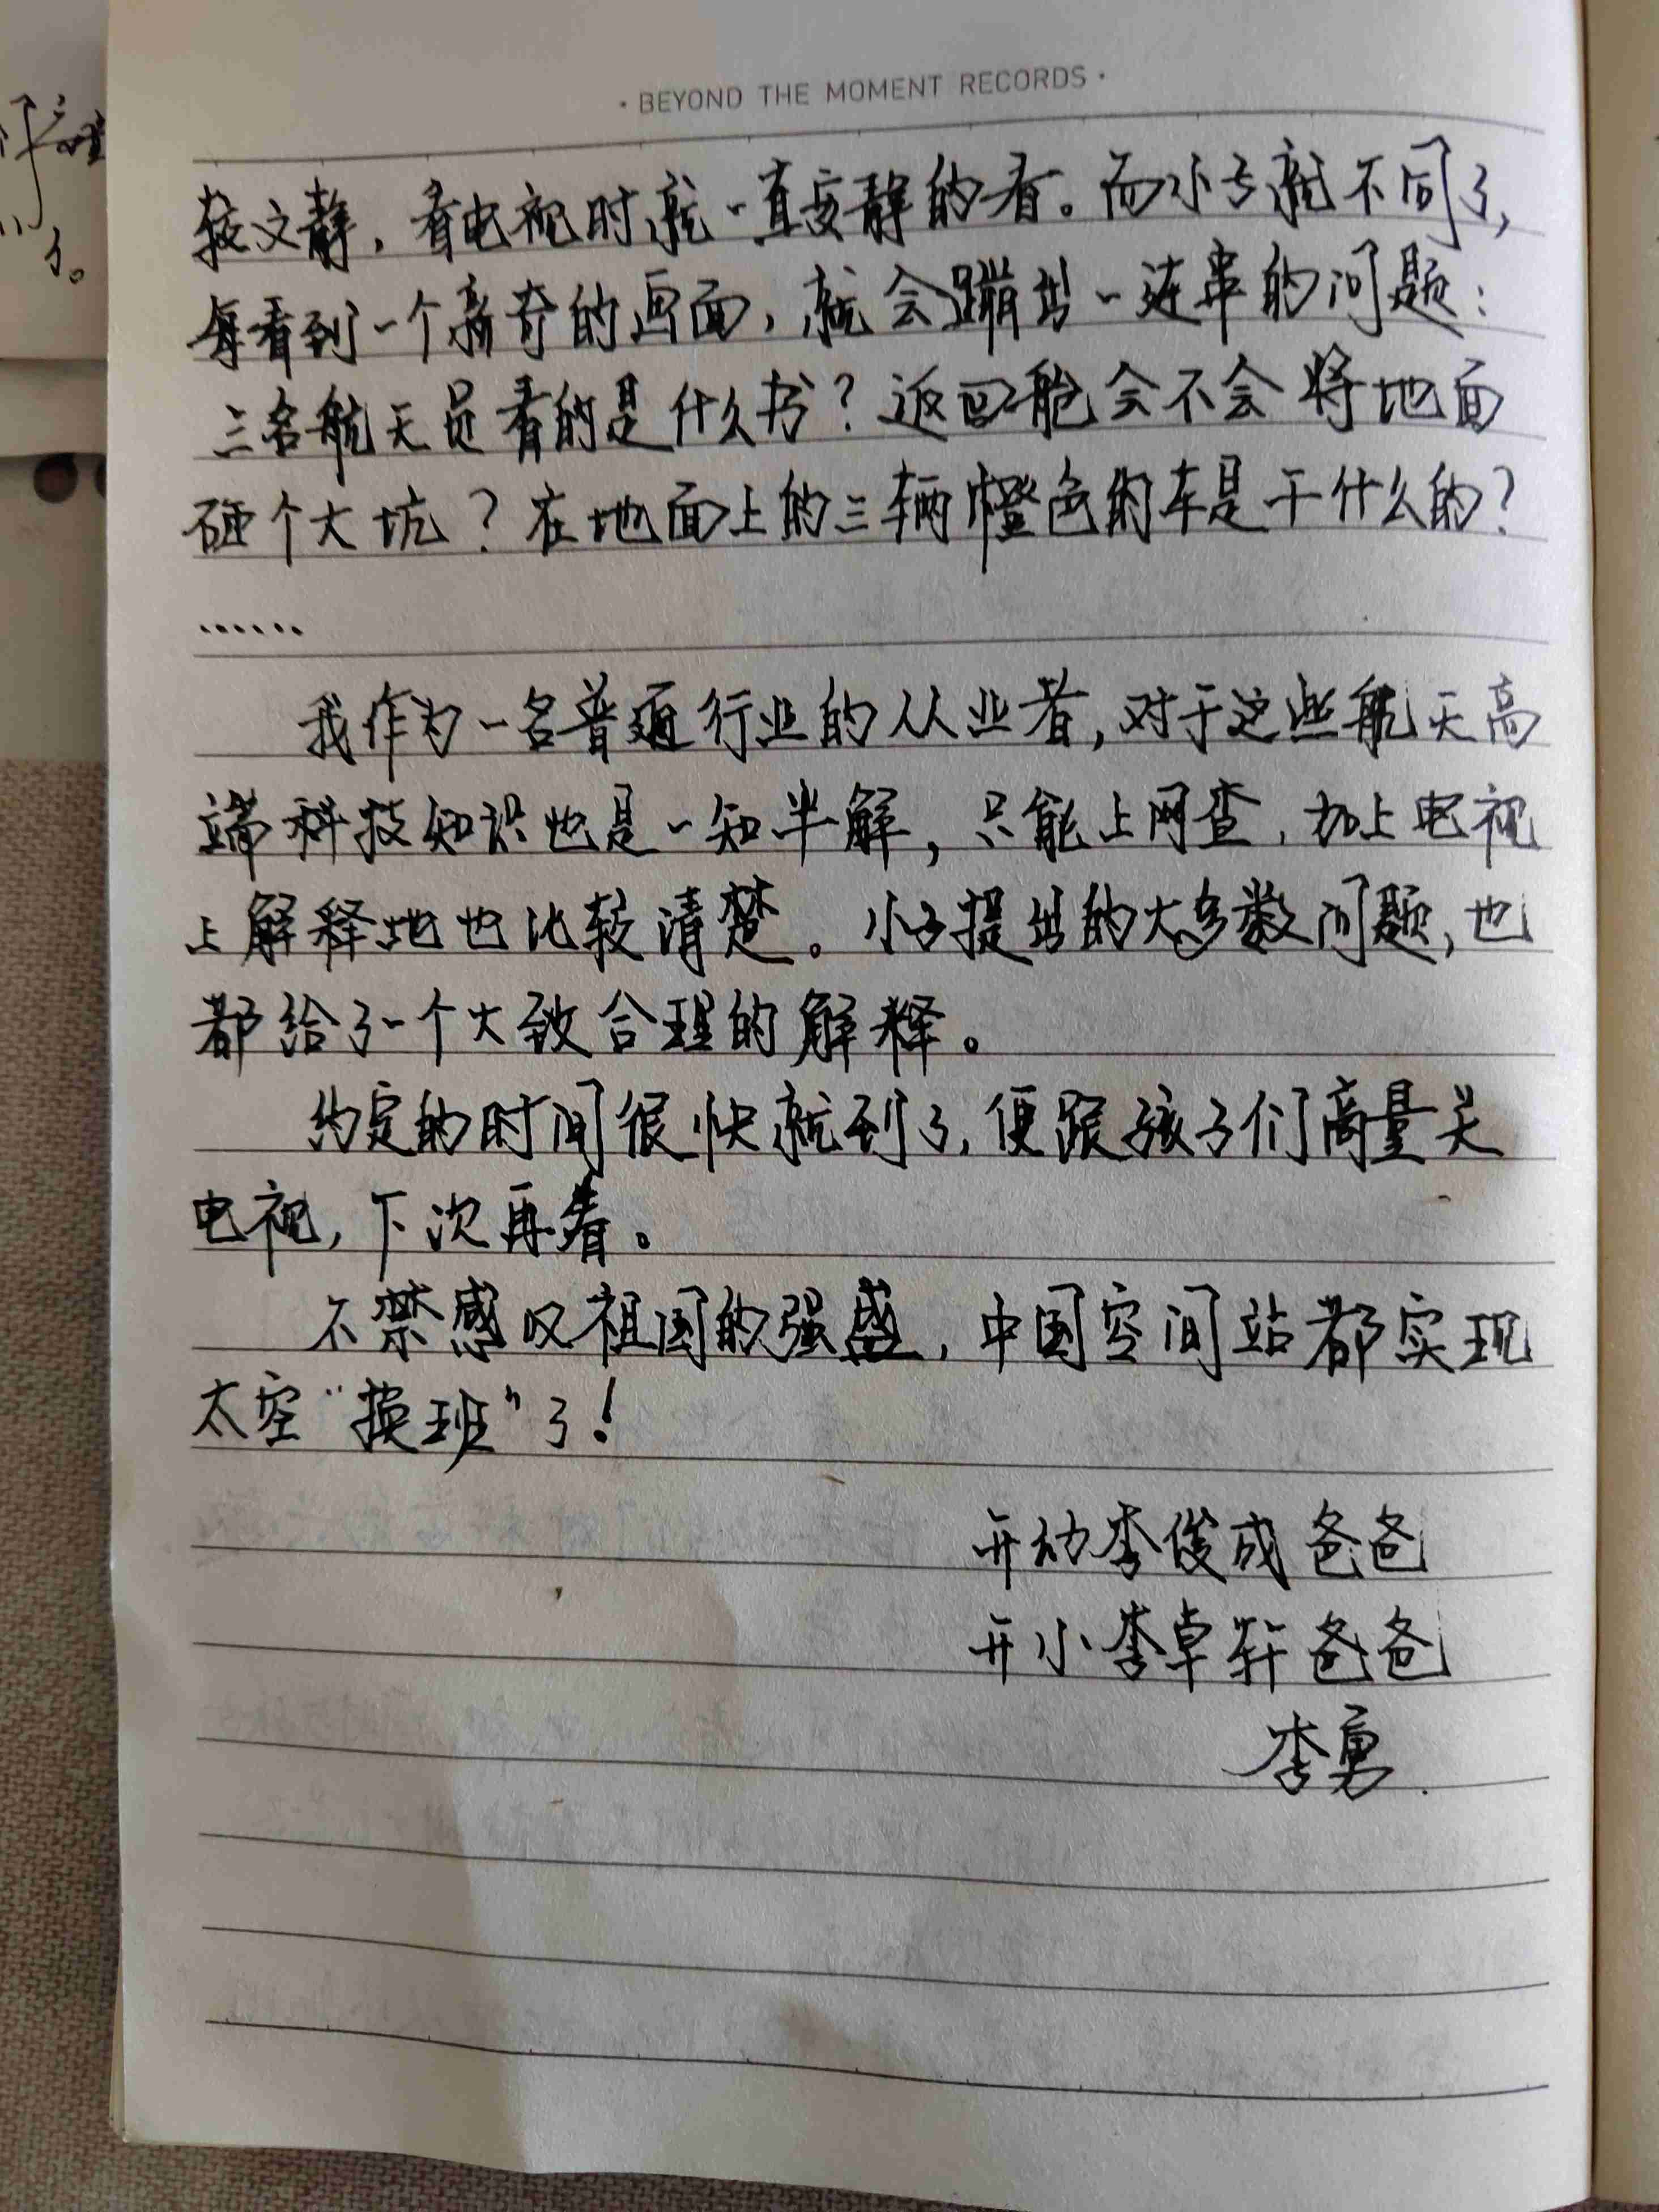 · BEYOND THE MOMENT RECORDS ·
较文静，看电视时就一直安静的看。而小子就不同了，
每看到一个新奇的画面，就会蹦出一连串的问题：
三名航天员看的是什么书？返回舱会不会将地面
砸个大坑？在地面上的三辆橙色的车是干什么的？
……
我作为一名普通行业的从业者，对于这些航天高
端科技知识也是一知半解，只能上网查，加上电视
上解释地也比较清楚。小子提出的大多数问题，也
都给了一个大致合理的解释。
约定的时间很快就到了，便跟孩子们商量关
电视，下次再看。
不禁感叹祖国的强盛，中国空间站都实现
太空“换班”了！
开幼李俊成爸爸
开小李卓轩爸爸
李勇